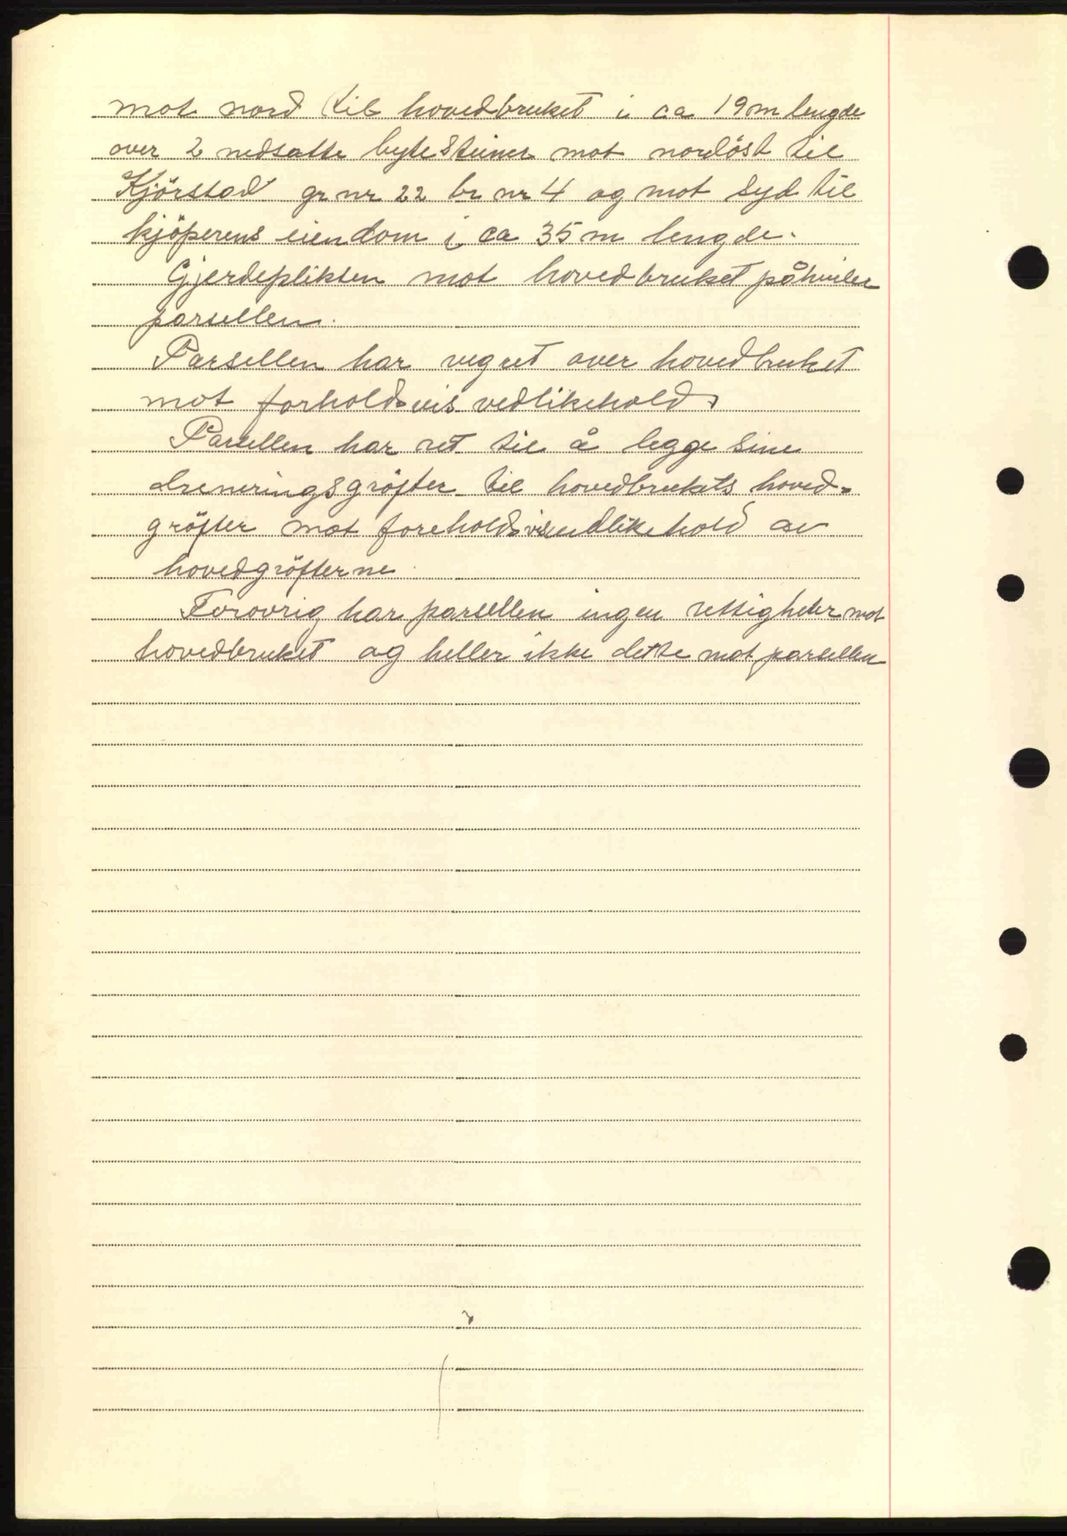 mot nord til hovedbruket i ca 19 m lengde
over 2 nedsatte bytesteiner mot nordöst til
Kjörstad gr nr 22 br nr 4 og mot syd til
kjöperens eiendom i ca 35 m lengde.
Gjerdeplikten mot hovedbruket påhviler
parsellen.
Parsellen har vegret over hovedbruket
mot forholdsvis vedlikehold.
Parsellen har ret til å legge sine
dreneringsgröfter til hovedbrukets hoved-
gröfter mot foreholdsvis vedlikehold av
hovedgröfterne.
Forövrig har parsellen ingen rettigheter mot
hovedbruket og heller ikke dette mot parsellen